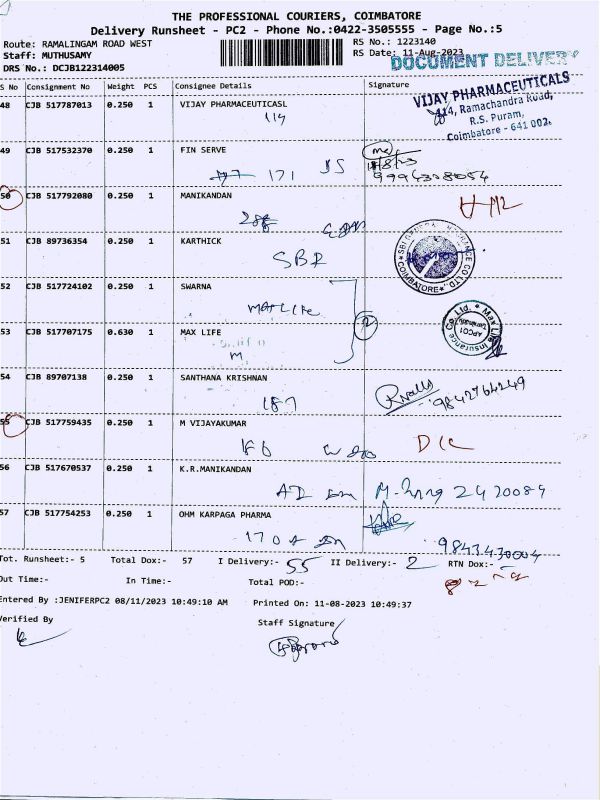 THE PROFESSIONAL COURIERS, COIMBATORE
Delivery Runsheet - PC2 - Phone No.:0422-3505555 - Page No.:5
Route: RAMALINGAM ROAD WEST
RS No.: 1223140
Staff: MUTHUSAMY
RS Date: 11-Aug-2023
DRS No.: DCJB122314005
DOCUMENT DELIVERY
S No Consignment No Weight PCS Consignee Details Signature
48 CJB 517787013 0.250 1 VIJAY PHARMACEUTICASL
114
VIJAY PHARMACEUTICALS
414, Ramachandra Road,
R.S. Puram,
Coimbatore - 641 002.
49 CJB 517532370 0.250 1 FIN SERVE
171
11/8/23
9994308054
50 CJB 517792080 0.250 1 MANIKANDAN
51 CJB 89736354 0.250 1 KARTHICK
SBI
COIMBATORE
52 CJB 517724102 0.250 1 SWARNA
Max Life
53 CJB 517707175 0.630 1 MAX LIFE
M
2
Max Life Insurance Co. Ltd.
54 CJB 89707138 0.250 1 SANTHANA KRISHNAN
187
9842764249
55 CJB 517759435 0.250 1 M VIJAYAKUMAR
D/C
56 CJB 517670537 0.250 1 K.R.MANIKANDAN
2420084
57 CJB 517754253 0.250 1 OHM KARPAGA PHARMA
170
9843430004
Tot. Runsheet:- 5 Total Dox:- 57 I Delivery:- 55 II Delivery:- 2 RTN Dox:-
Out Time:- In Time:- Total POD:-
Entered By :JENIFERPC2 08/11/2023 10:49:10 AM Printed On: 11-08-2023 10:49:37
Verified By
Staff Signature